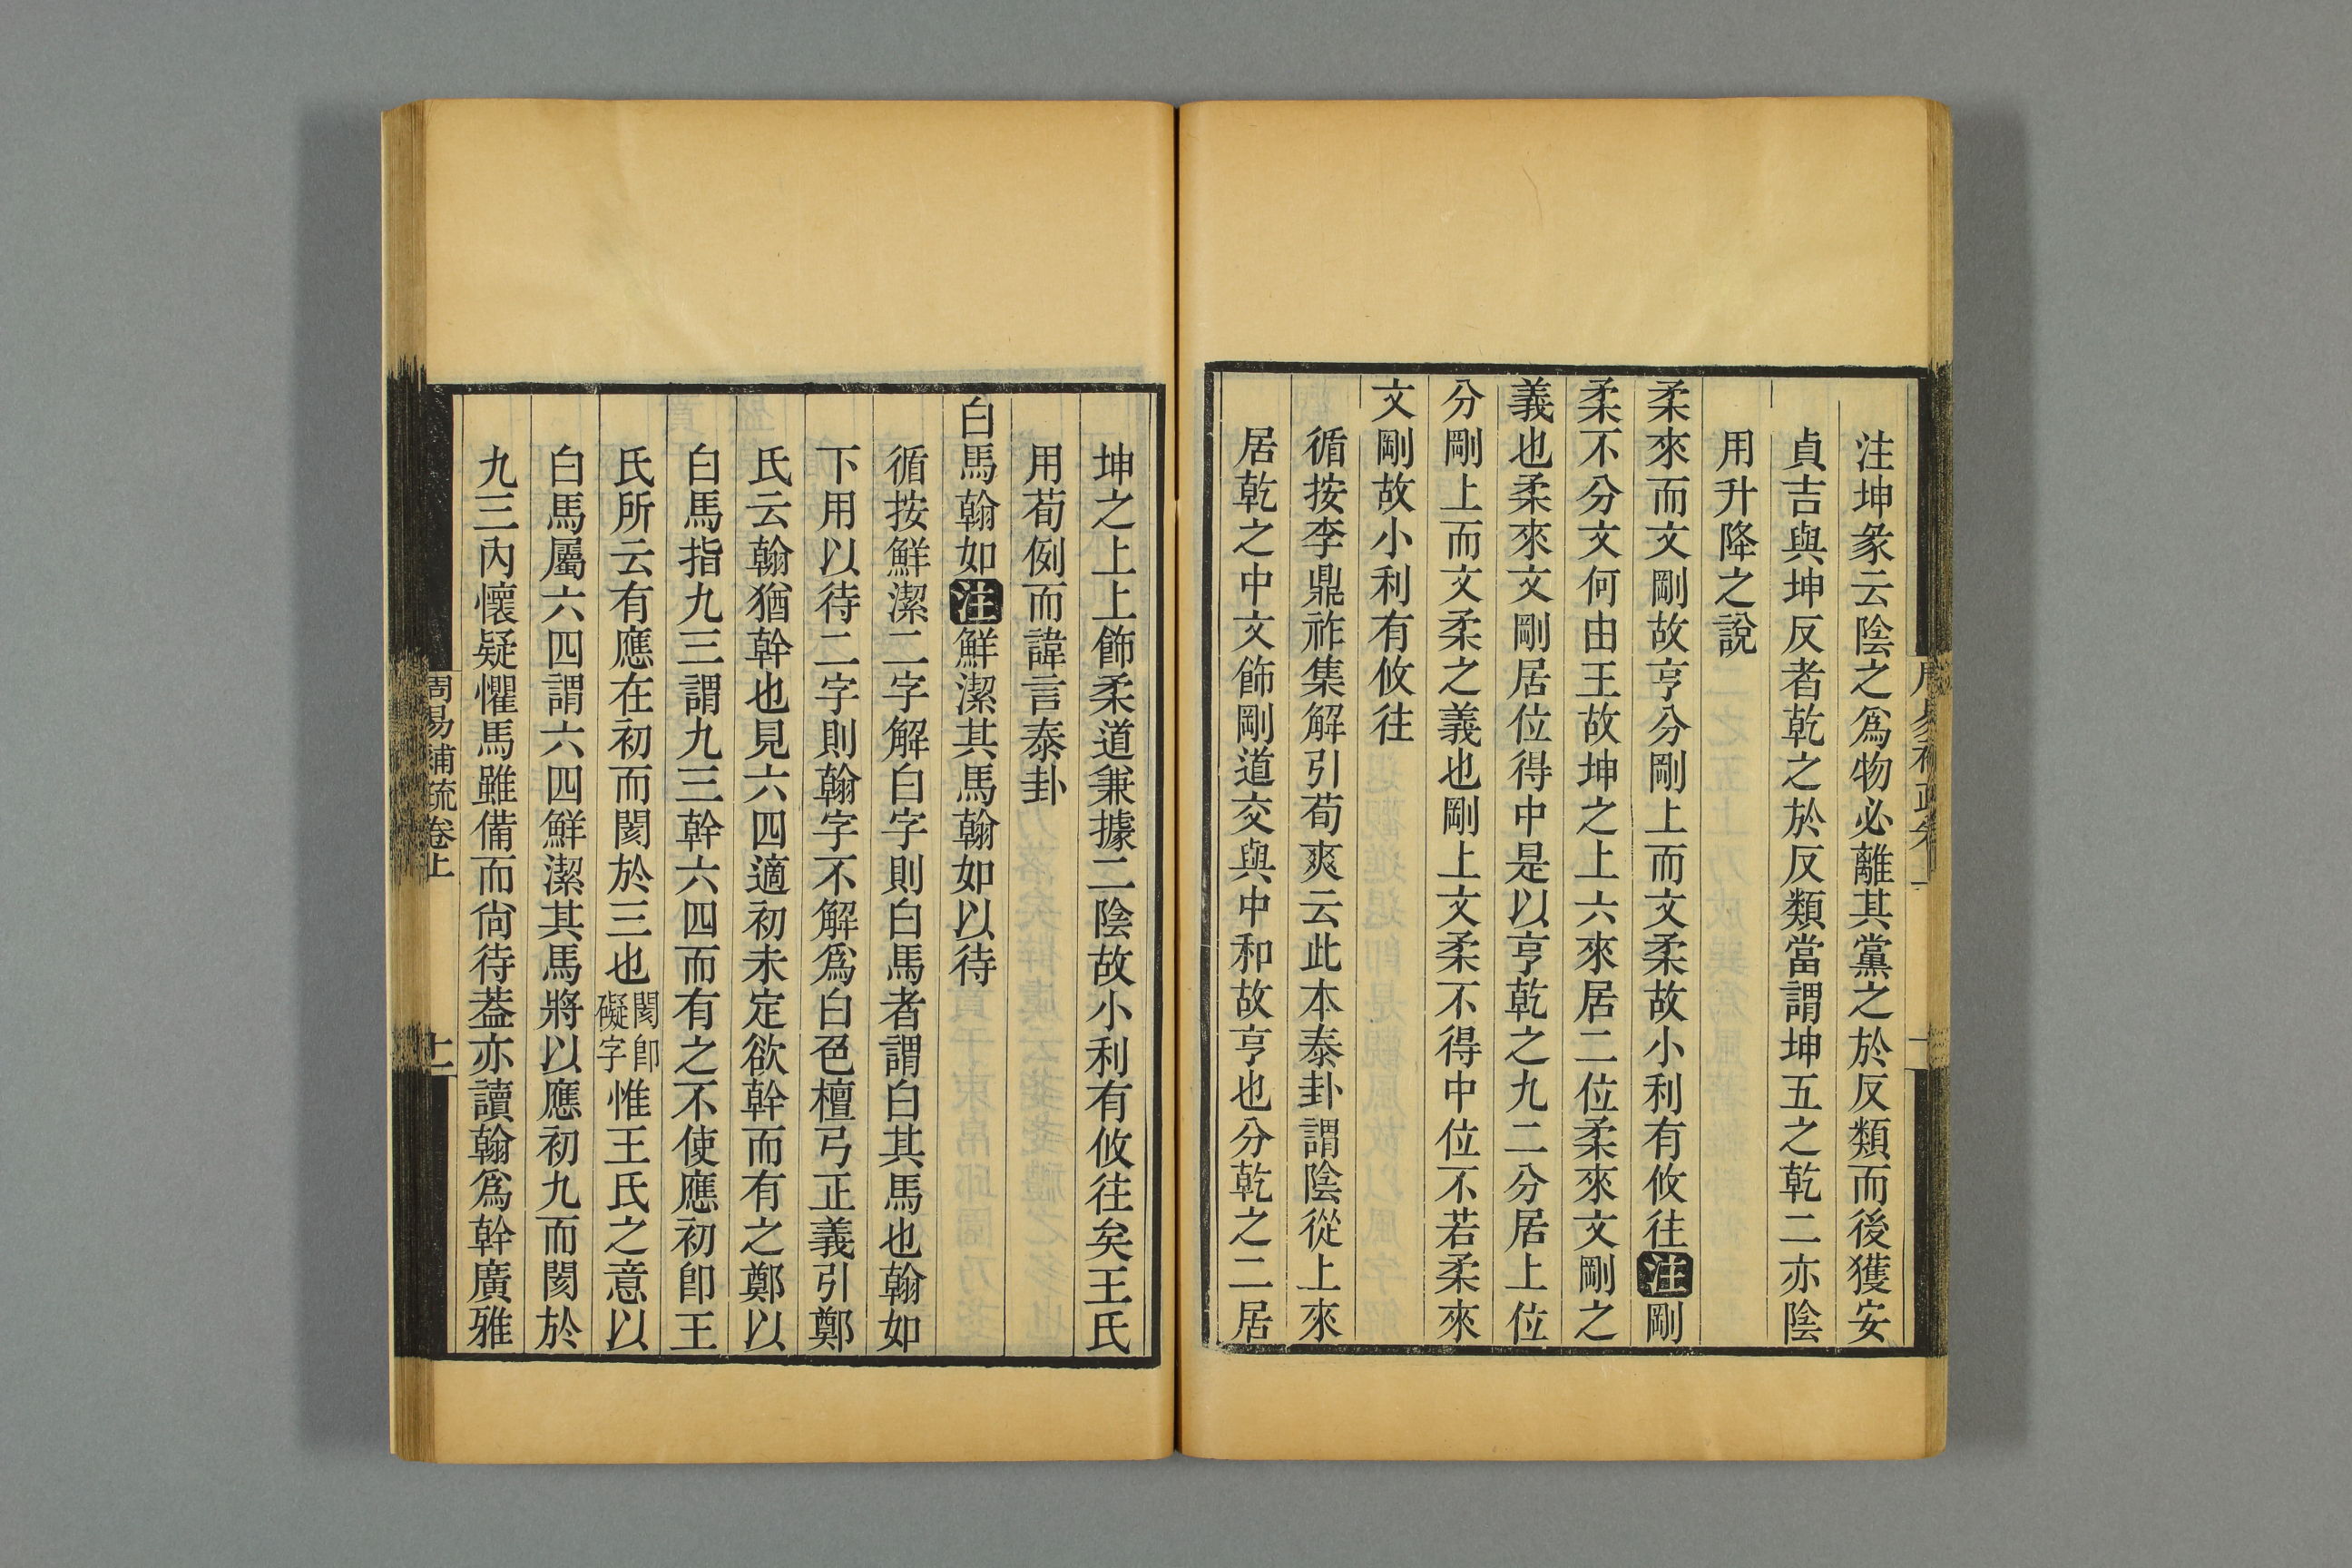 注坤彖云陰之爲物必離其黨之於反類而後獲安
貞吉與坤反者乾之於反類當謂坤五之乾二亦陰
用升降之說
柔來而文剛故亨分剛上而文柔故小利有攸往注剛
柔不分文何由王故坤之上六來居二位柔來文剛之
義也柔來文剛居位得中是以亨乾之九二分居上位
分剛上而文柔之義也剛上文柔不得中位不若柔來
文剛故小利有攸往
循按李鼎祚集解引荀爽云此本泰卦謂陰從上來
居乾之中文飾剛道交與中和故亨也分乾之二居
坤之上上飾柔道兼據二陰故小利有攸往矣王氏
用荀例而諱言泰卦
白馬翰如注鮮潔其馬翰如以待
循按鮮潔二字解白字則白馬者謂白其馬也翰如
下用以待二字則翰字不解爲白色檀弓正義引鄭
氏云翰猶幹也見六四適初未定欲幹而有之鄭以
白馬指九三謂九三幹六四而有之不使應初卽王
氏所云有應在初而閡於三也閡卽礙字惟王氏之意以
白馬屬六四謂六四鮮潔其馬將以應初九而閡於
九三內懷疑懼馬雖備而尙待葢亦讀翰爲幹廣雅
周易補疏卷上